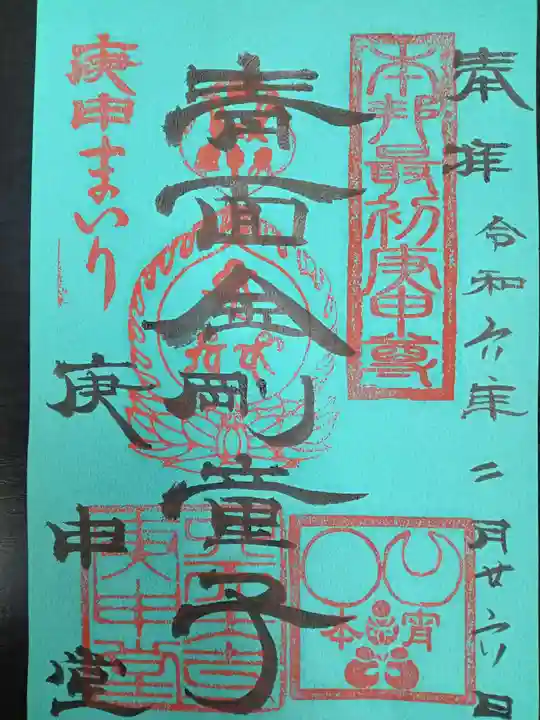 奉拝
令和六年二月廿六日
本邦最初庚申尊
青面金剛童子
宵
本
庚申まいり
庚申堂